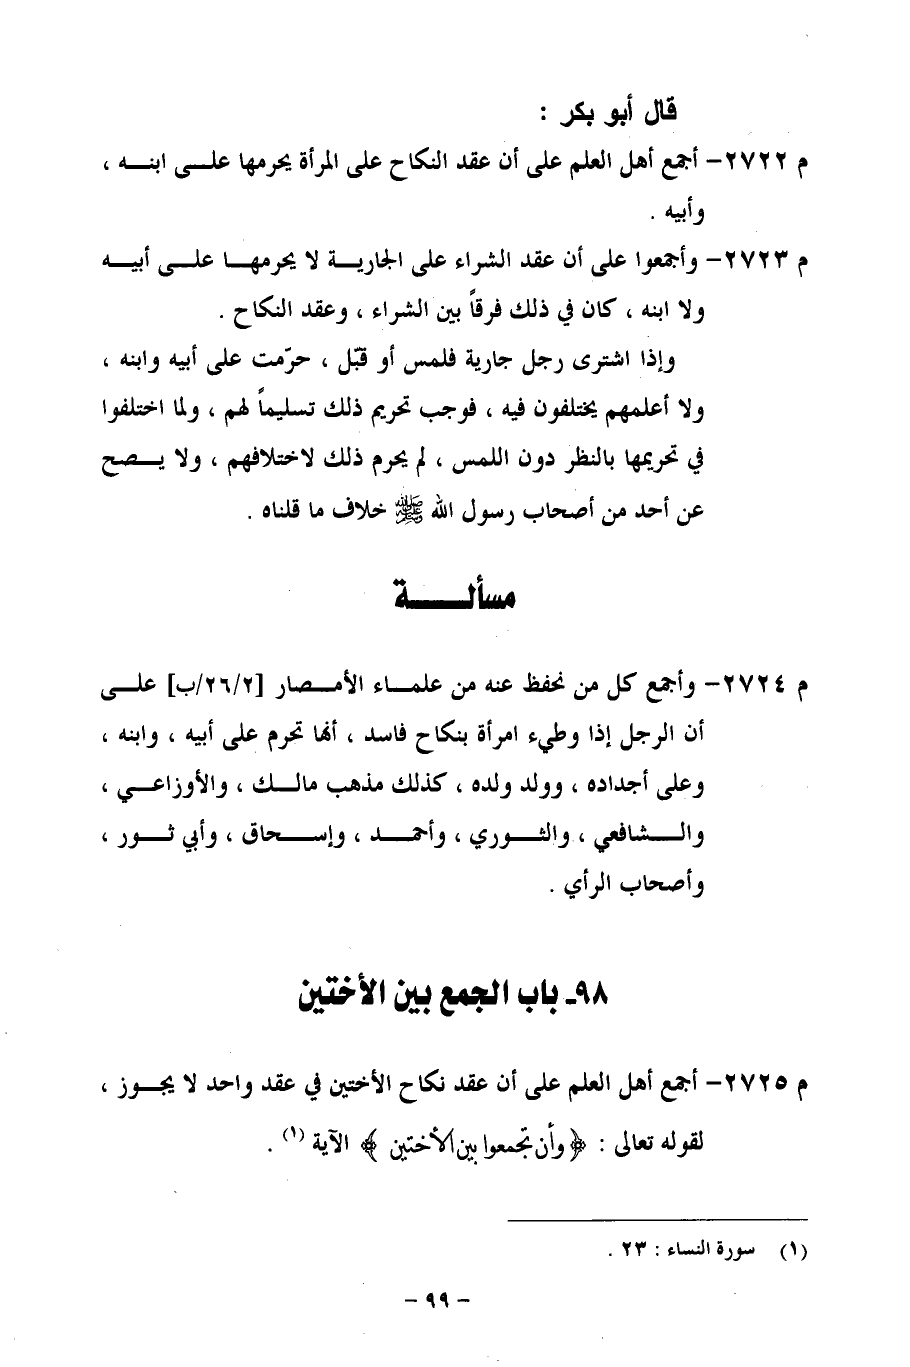 قال أبو بكر :
م ٢٧٢٢- أجمع أهل العلم على أن عقد النكاح على المرأة يحرمها علـى ابنـه ،
وأبيه .
م ٢٧٢٣- وأجمعوا على أن عقد الشراء على الجاريـة لا يحرمهـا علـى أبيـه
ولا ابنه ، كان في ذلك فرقاً بين الشراء ، وعقد النكاح .
وإذا اشترى رجل جارية فلمس أو قبّل ، حرّمت على أبيه وابنه ،
ولا أعلمهم يختلفون فيه ، فوجب تحريم ذلك تسليماً لهم ، ولما اختلفوا
في تحريمها بالنظر دون اللمس ، لم يحرم ذلك لاختلافهم ، ولا يـصح
عن أحد من أصحاب رسول الله ﷺ خلاف ما قلناه .
مسألـــة
م ٢٧٢٤- وأجمع كل من نحفظ عنه من علمـاء الأمـصار [٢/٢٦/ب] علـى
أن الرجل إذا وطيء امرأة بنكاح فاسد ، أنها تحرم على أبيه ، وابنه ،
وعلى أجداده ، وولد ولده ، كذلك مذهب مالـك ، والأوزاعـي ،
والـشافعي ، والثـوري ، وأحمـد ، وإسـحاق ، وأبي ثـور ،
وأصحاب الرأي .
٩٨ـ باب الجمع بين الأختين
م ٢٧٢٥- أجمع أهل العلم على أن عقد نكاح الأختين في عقد واحد لا يجـوز ،
لقوله تعالى : ﴿ وأن تجمعوا بين الأختين ﴾ الآية (١) .
(١) سورة النساء : ٢٣ .
- ٩٩ -